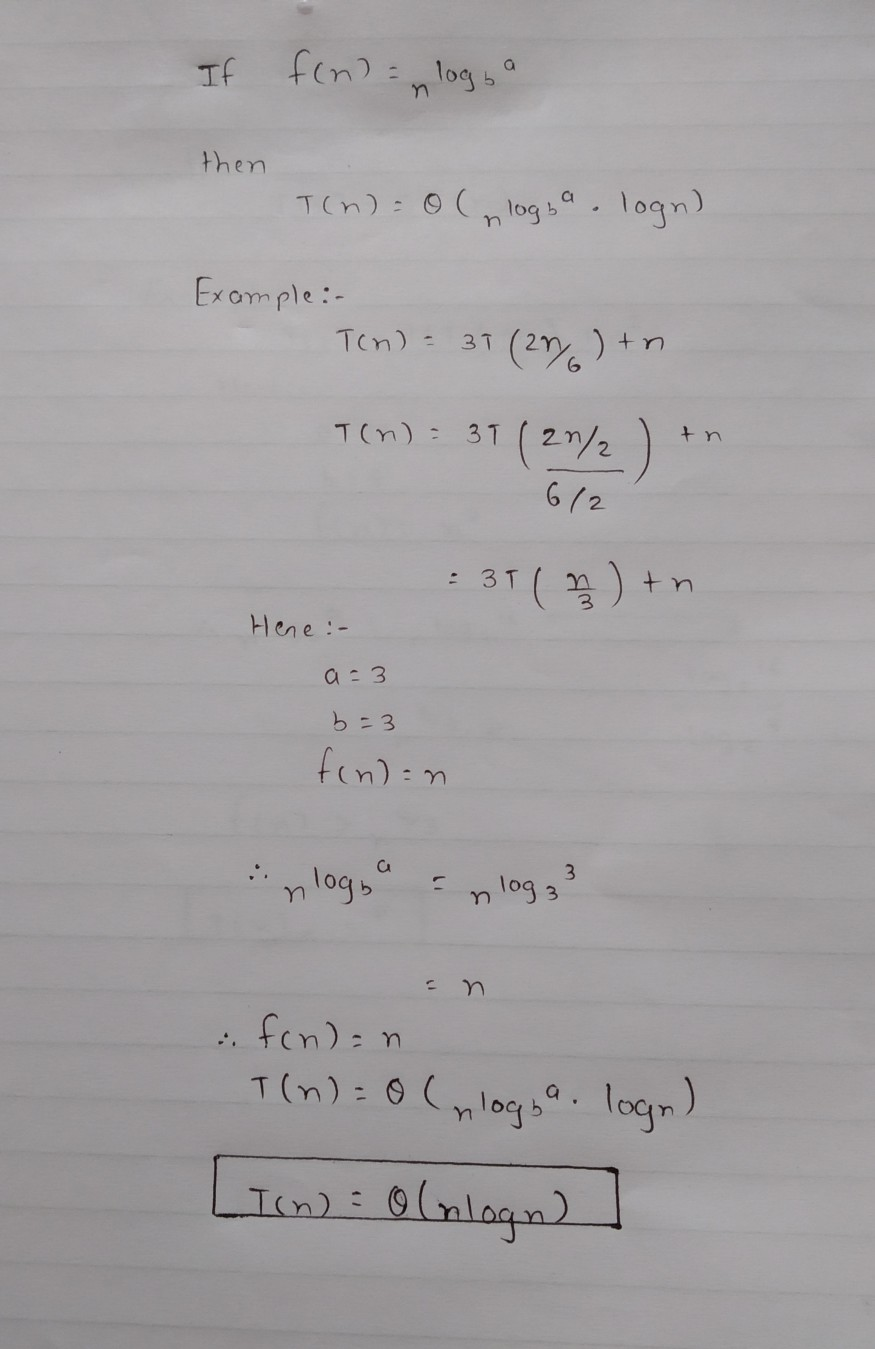 If f(n) = n^log_b^a
then
T(n) = Θ(n^log_b^a . logn)
Example:-
T(n) = 3T (2n/6) + n
T(n) = 3T ((2n/2)/(6/2)) + n
= 3T (n/3) + n
Here :-
a = 3
b = 3
f(n) = n
∴ n^log_b^a = n^log_3^3
= n
∴ f(n) = n
T(n) = Θ (n^log_b^a . logn)
T(n) = Θ(nlogn)